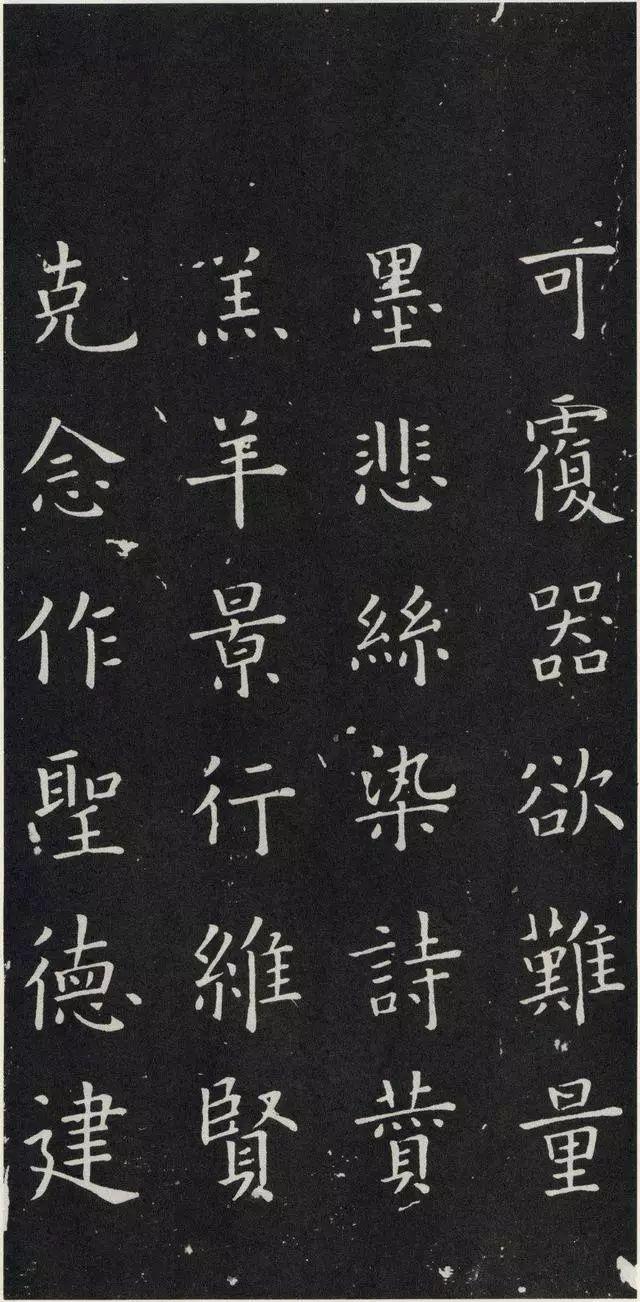 可覆器欲難量
墨悲絲染詩讃
羔羊景行維賢
克念作聖德建